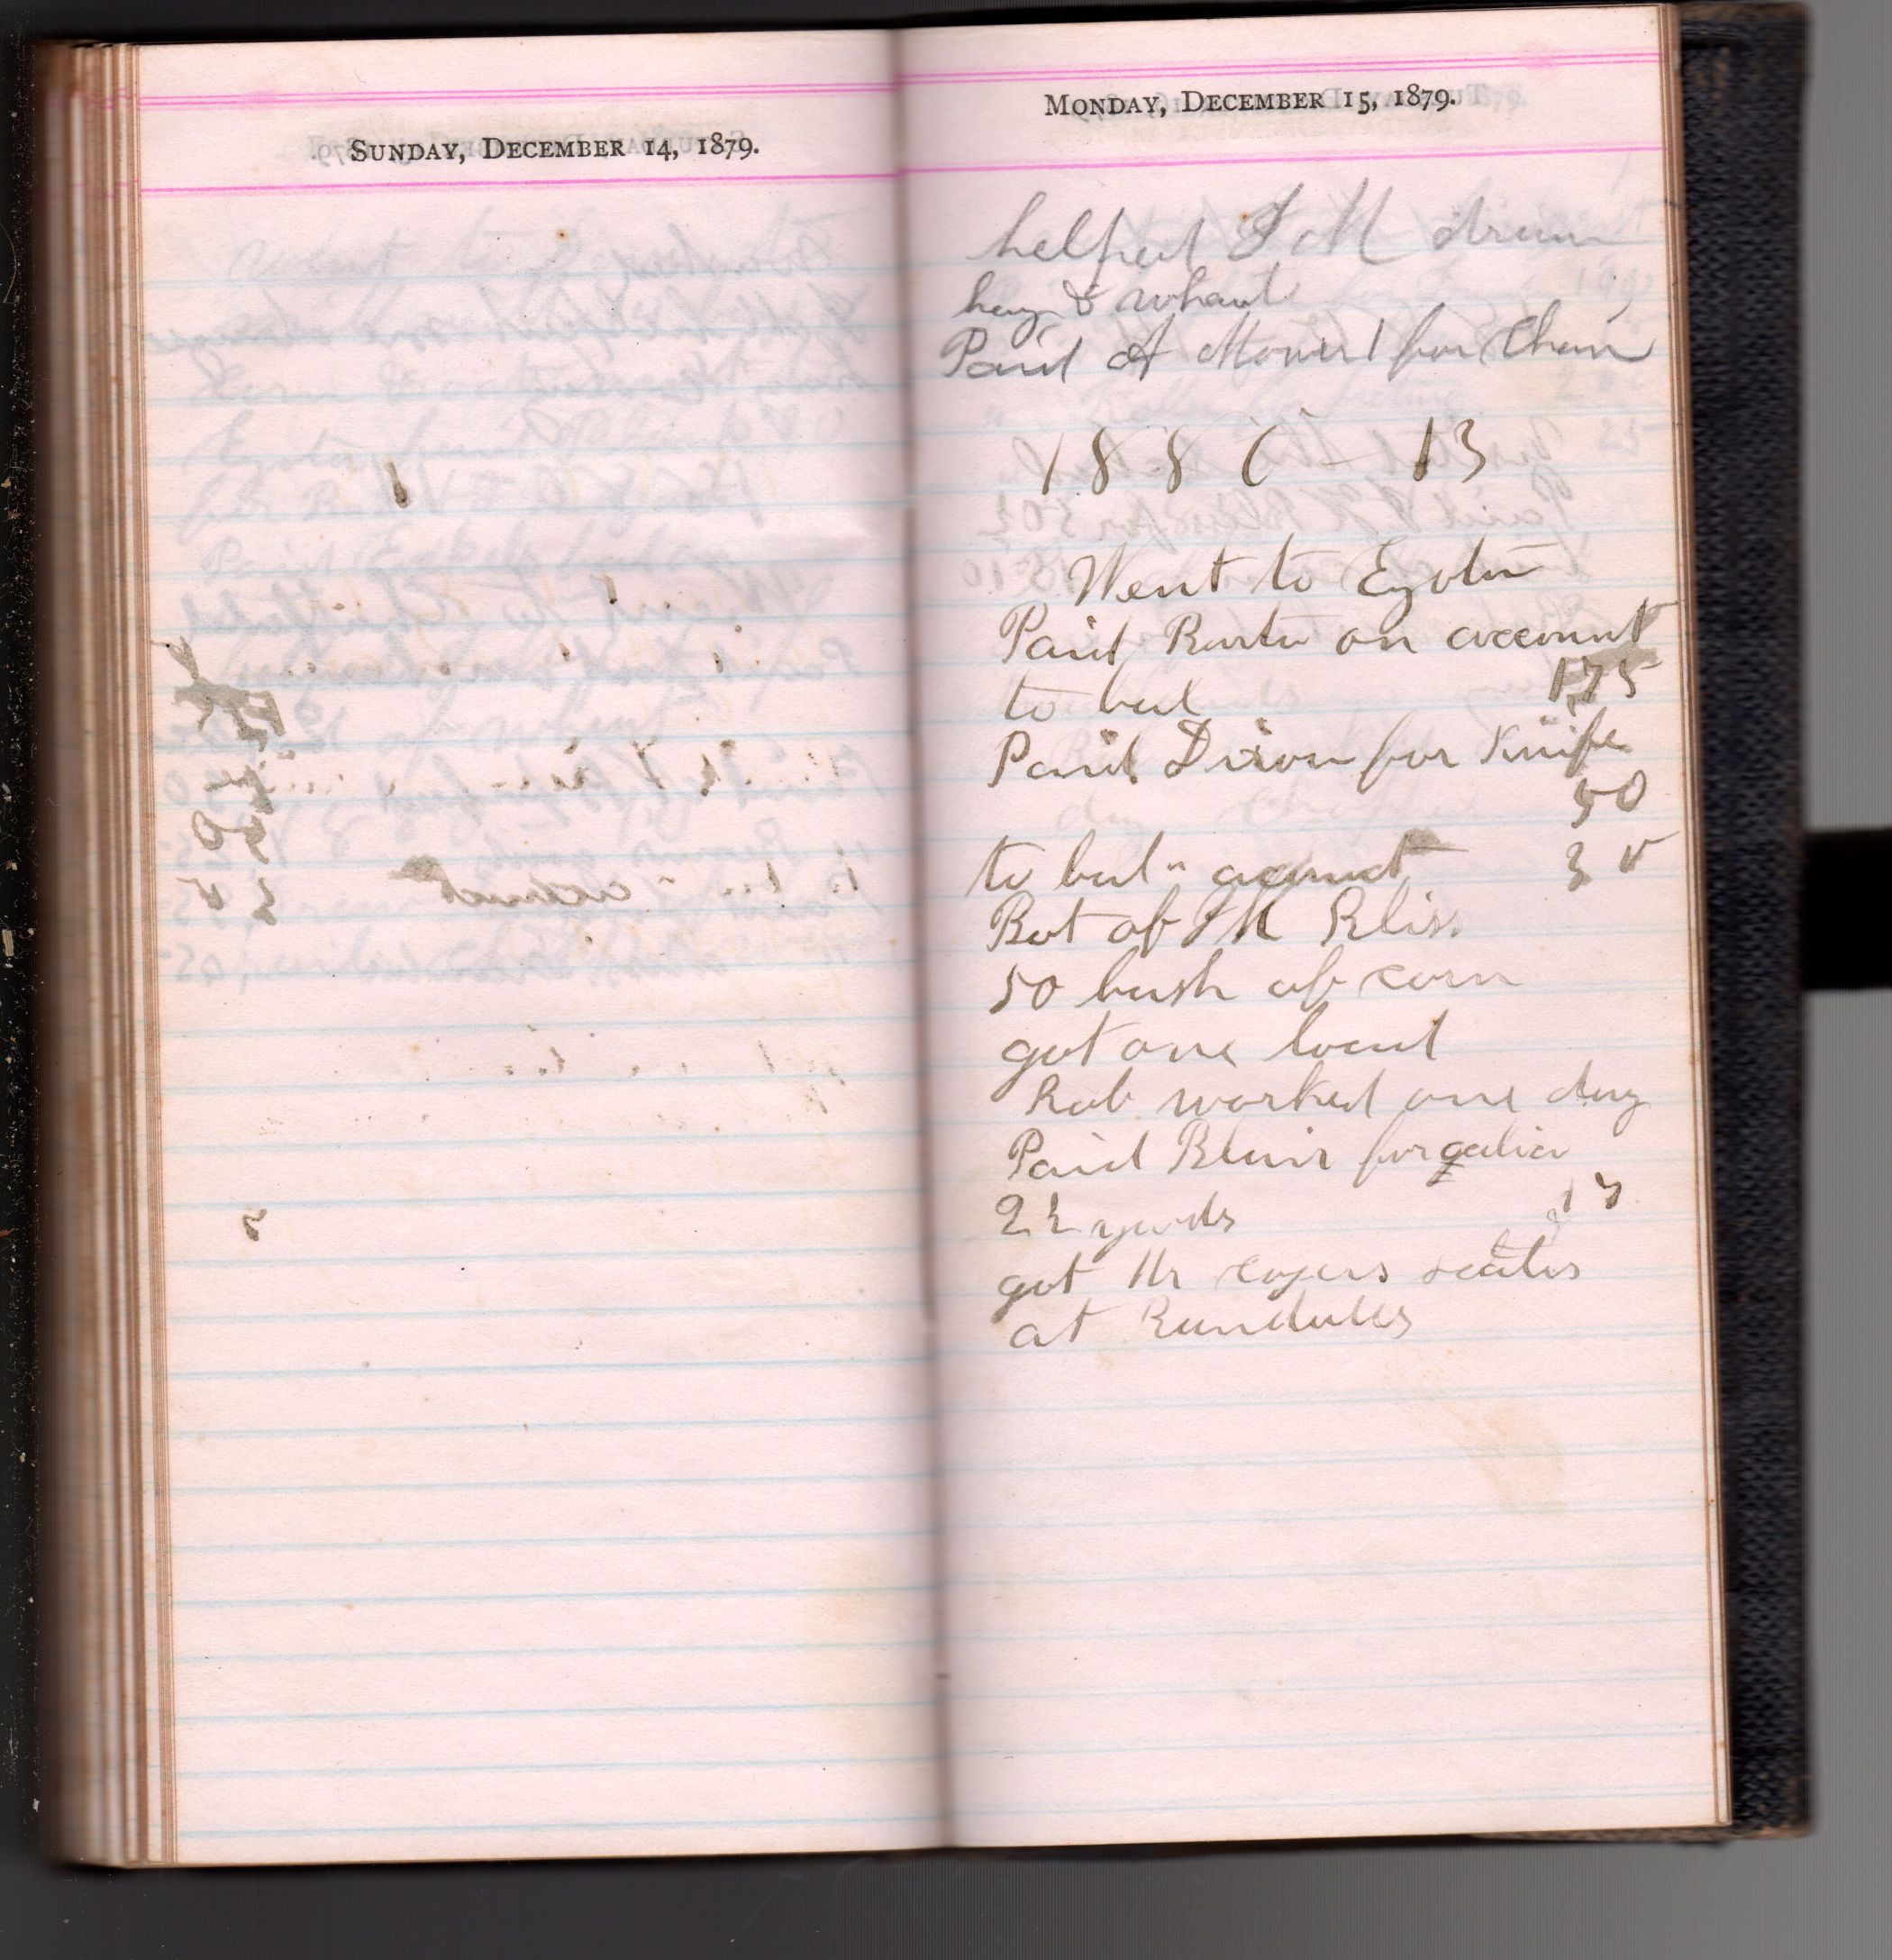 SUNDAY, DECEMBER 14, 1879.
MONDAY, DECEMBER 15, 1879.
helped I M draw
hay & wheat
Paid A Mower 1 for Chain
1 8 8 0 - 13
Went to Eyota
Paid on account
to bal 175
Paid Dixon for Knife
50
to bal " account 3 5
Bot of I M Bliss
50 bush of corn
got one load
Rob worked one day
Paid Blair for calico
2 ½ yards 17
got Mr scales
at Rundells